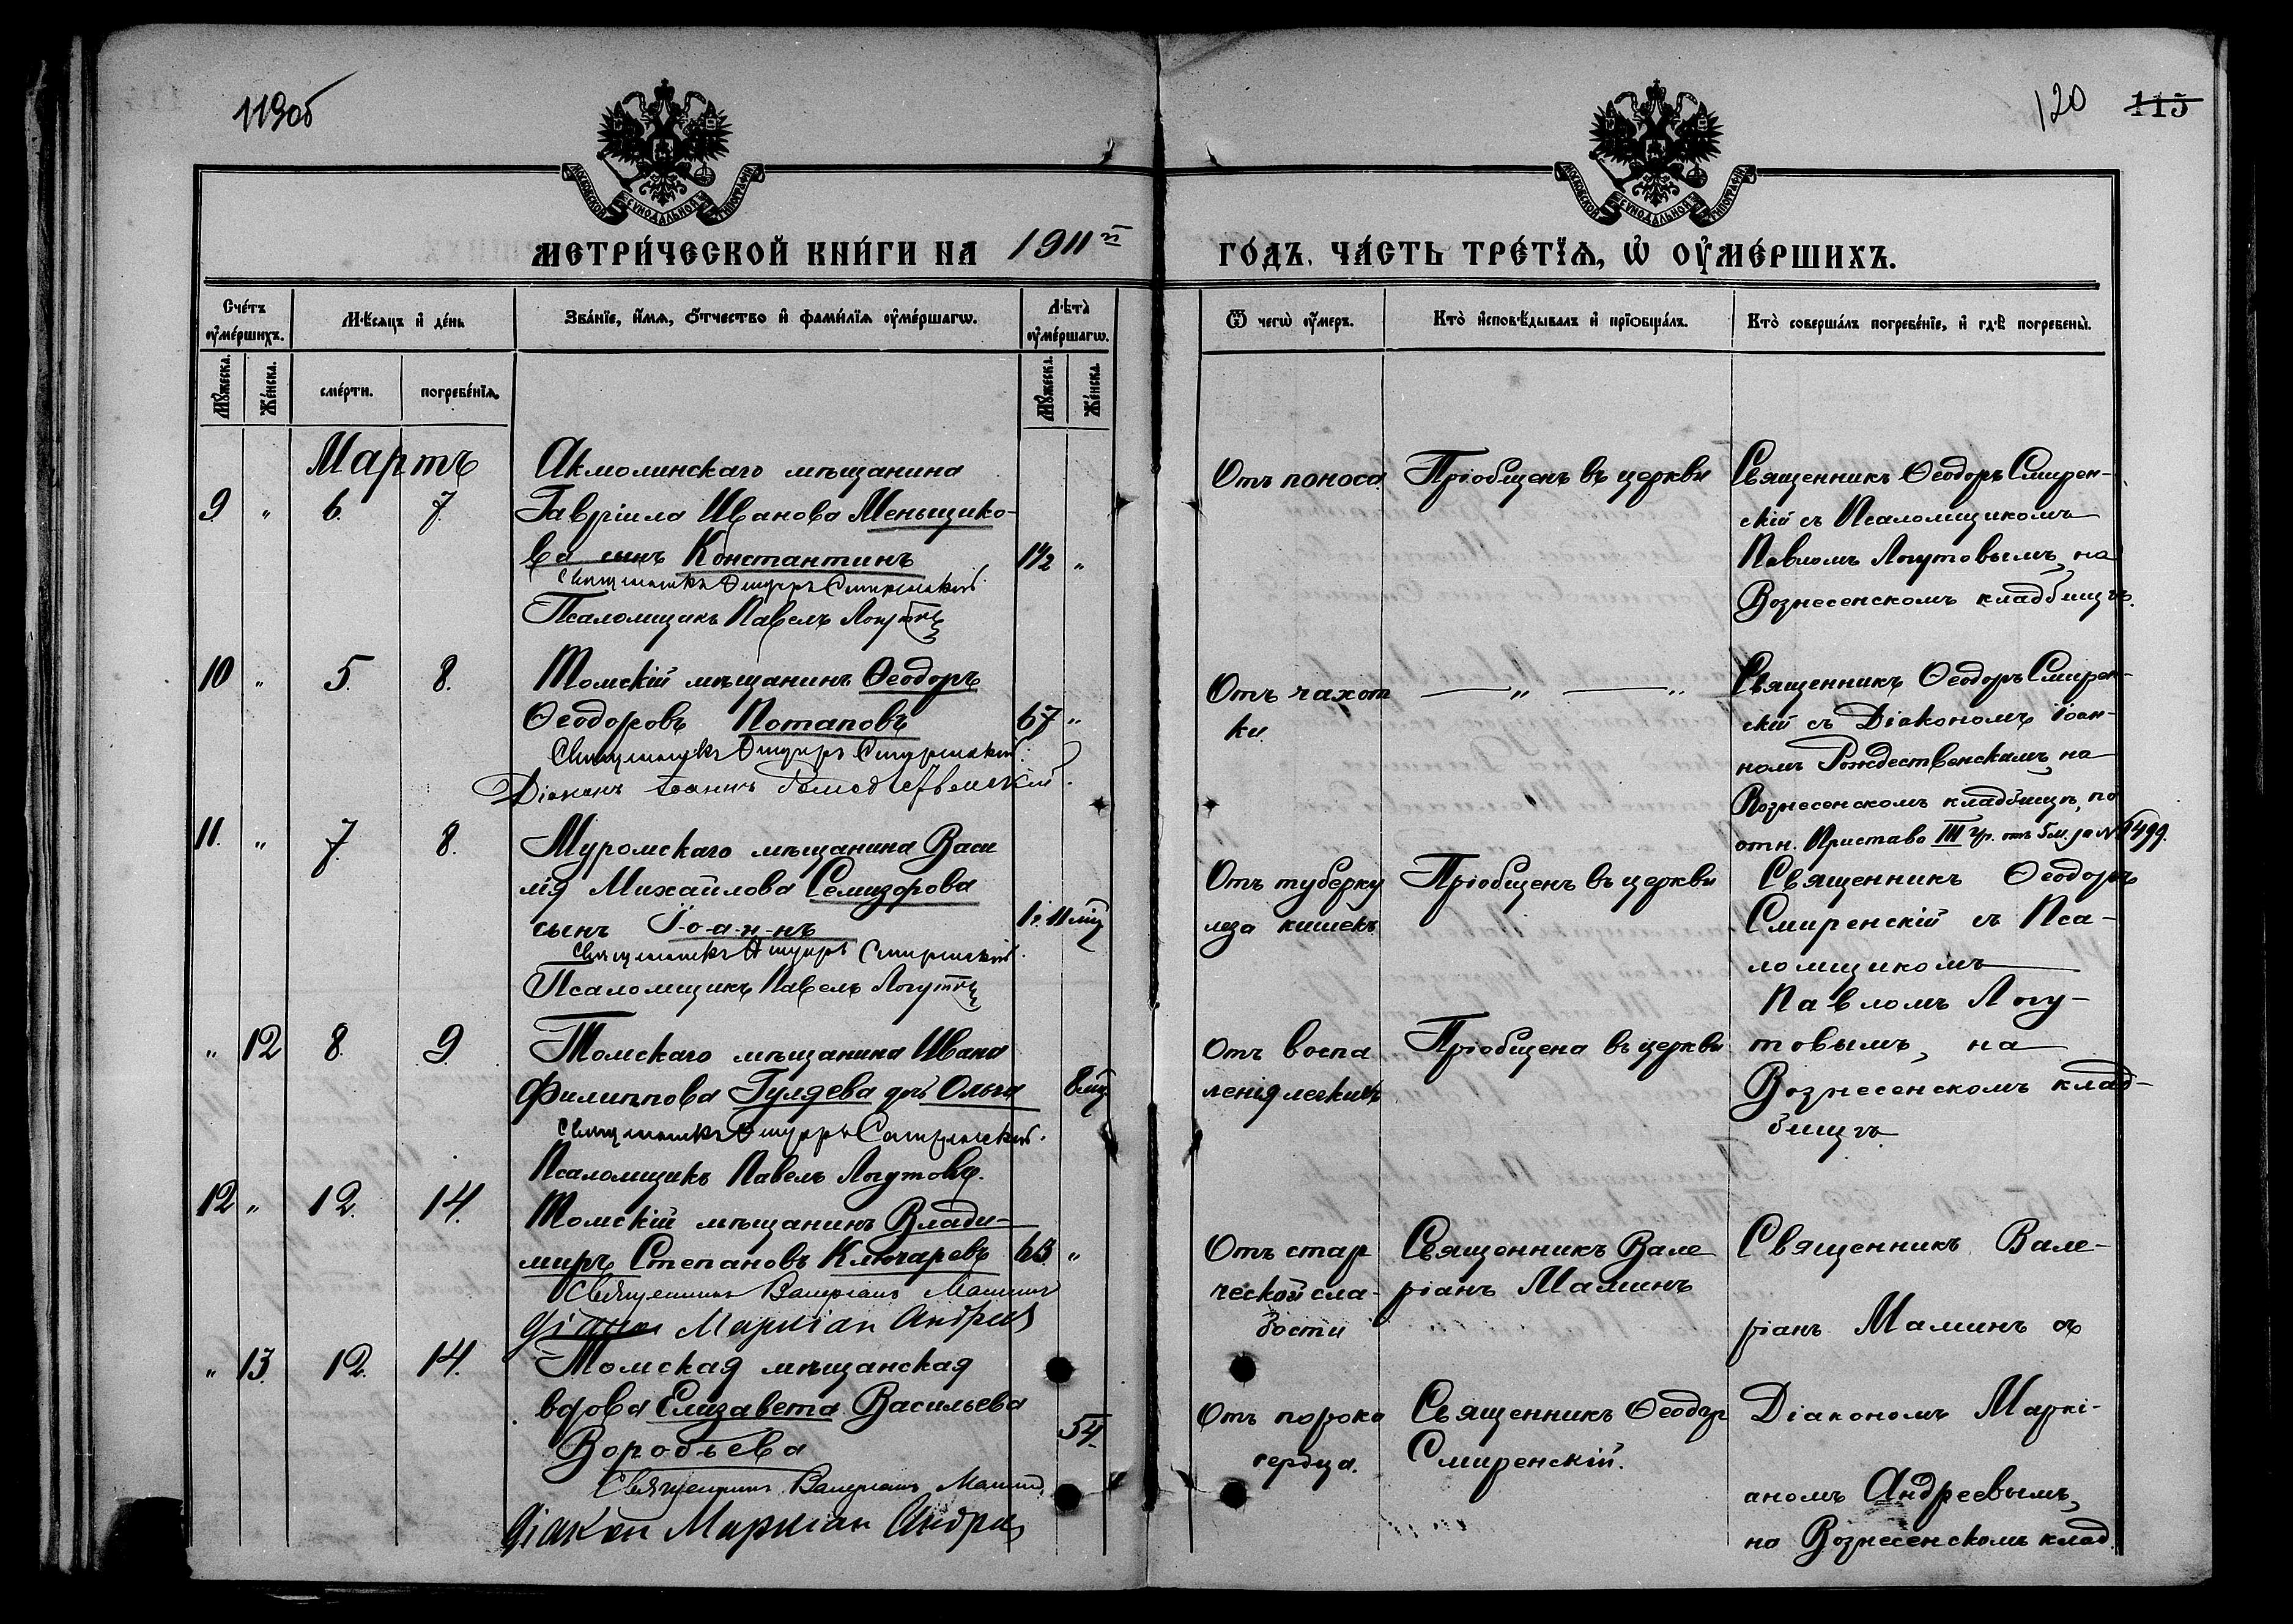 119об
120 115
МОСКОВСКОЙ СѴНОДАЛЬНОЙ ТИПОГРАФІИ
МОСКОВСКОЙ СѴНОДАЛЬНОЙ ТИПОГРАФІИ
МЕТРИ́ЧЕСКОЙ КНИ́ГИ НА 1911й
ГО́ДЪ, ЧА́СТЬ ТРЕ́ТЇѦ, Ѡ҆ ОУ҆МЕ́РШИХЪ.
Сче́тъ оу҆ме́ршихъ.
Мꙋ́жеска.
Же́нска.
Мѣ́сяцъ и҆ де́нь
сме́рти.
погребе́нїѧ.
Зва́нїе, и҆́мѧ, о҆́тчество и҆ фами́лїѧ оу҆ме́ршагѡ.
Лѣ́та оу҆ме́ршагѡ.
Мꙋ́жеска.
Же́нска.
Ѿ чегѡ̀ оу҆́меръ.
Кто̀ и҆сповѣ́дывалъ и҆ прїѻбща́лъ.
Кто̀ соверша́лъ погребе́нїе, и҆ гдѣ̀ погребены̀.
Мартъ
9. " 6. 7.
Акмолинскаго мѣщанина
Гавріила Иванова Меньщико-
ва сынъ Константинъ 1½ "
Священникъ Ѳеодоръ Смиренскій.
Псаломщикъ Павелъ Логутовъ
Отъ поноса
Пріобщенъ въ церкви
Священникъ Ѳеодоръ Смирен-
скій съ Псаломщикомъ
Павломъ Логутовымъ, на
Вознесенскомъ кладбищѣ.
10 " 5. 8.
Томскій мѣщанинъ Ѳеодоръ
Ѳеодоровъ Потаповъ 67 "
Священникъ Ѳеодоръ Смиренскій.
Діаконъ Іоаннъ Рождественскій.
Отъ чахот
ки.
— " — "
Священникъ Ѳеодоръ Смирен-
скій съ Діакономъ Іоан-
номъ Рождественскимъ, на
Вознесенскомъ кладбищѣ, по
отн. Пристава III уч. отъ 5 м. за № 1499.
11. " 7. 8.
Муромскаго мѣщанина Васи
лія Михайлова Семизорова
сынъ І-о-а-н-нъ 1 г. 11 мц
Священникъ Ѳеодоръ Смиренскій.
Псаломщикъ Павелъ Логутовъ
Отъ туберку
леза кишекъ.
Пріобщенъ въ церкви
Священникъ Ѳеодоръ
Смиренскій съ Пса-
ломщикомъ
Павломъ Логу-
товымъ, на
Вознесенскомъ клад-
бищѣ
" 12 8. 9.
Томскаго мѣщанина Ивана
Филиппова Гуляева дчь Ольга 8 мц
Священникъ Ѳеодоръ Смиренскій.
Псаломщикъ Павелъ Логутовъ.
Отъ воспа
ленія легкихъ
Пріобщена въ церкви
12 " 12. 14.
Томскій мѣщанинъ Влади-
миръ Степановъ Ключаревъ 63. "
Священникъ Валеріанъ Маминъ
Діаконъ Маркіан Андреев
Отъ стар
ческой сла-
бости
Священникъ Вале
ріанъ Маминъ
Священникъ Вале-
ріанъ Маминъ съ
Діакономъ Маркі-
аномъ Андреевымъ,
на Вознесенскомъ клад
" 13. 12. 14.
Томская мѣщанская
вдова Елизавета Васильева
Воробьева 54.
Священникъ Валеріанъ Маминъ
Діакон Маркіан Андреев
Отъ порока
сердца.
Священникъ Ѳеодор
Смиренскій.